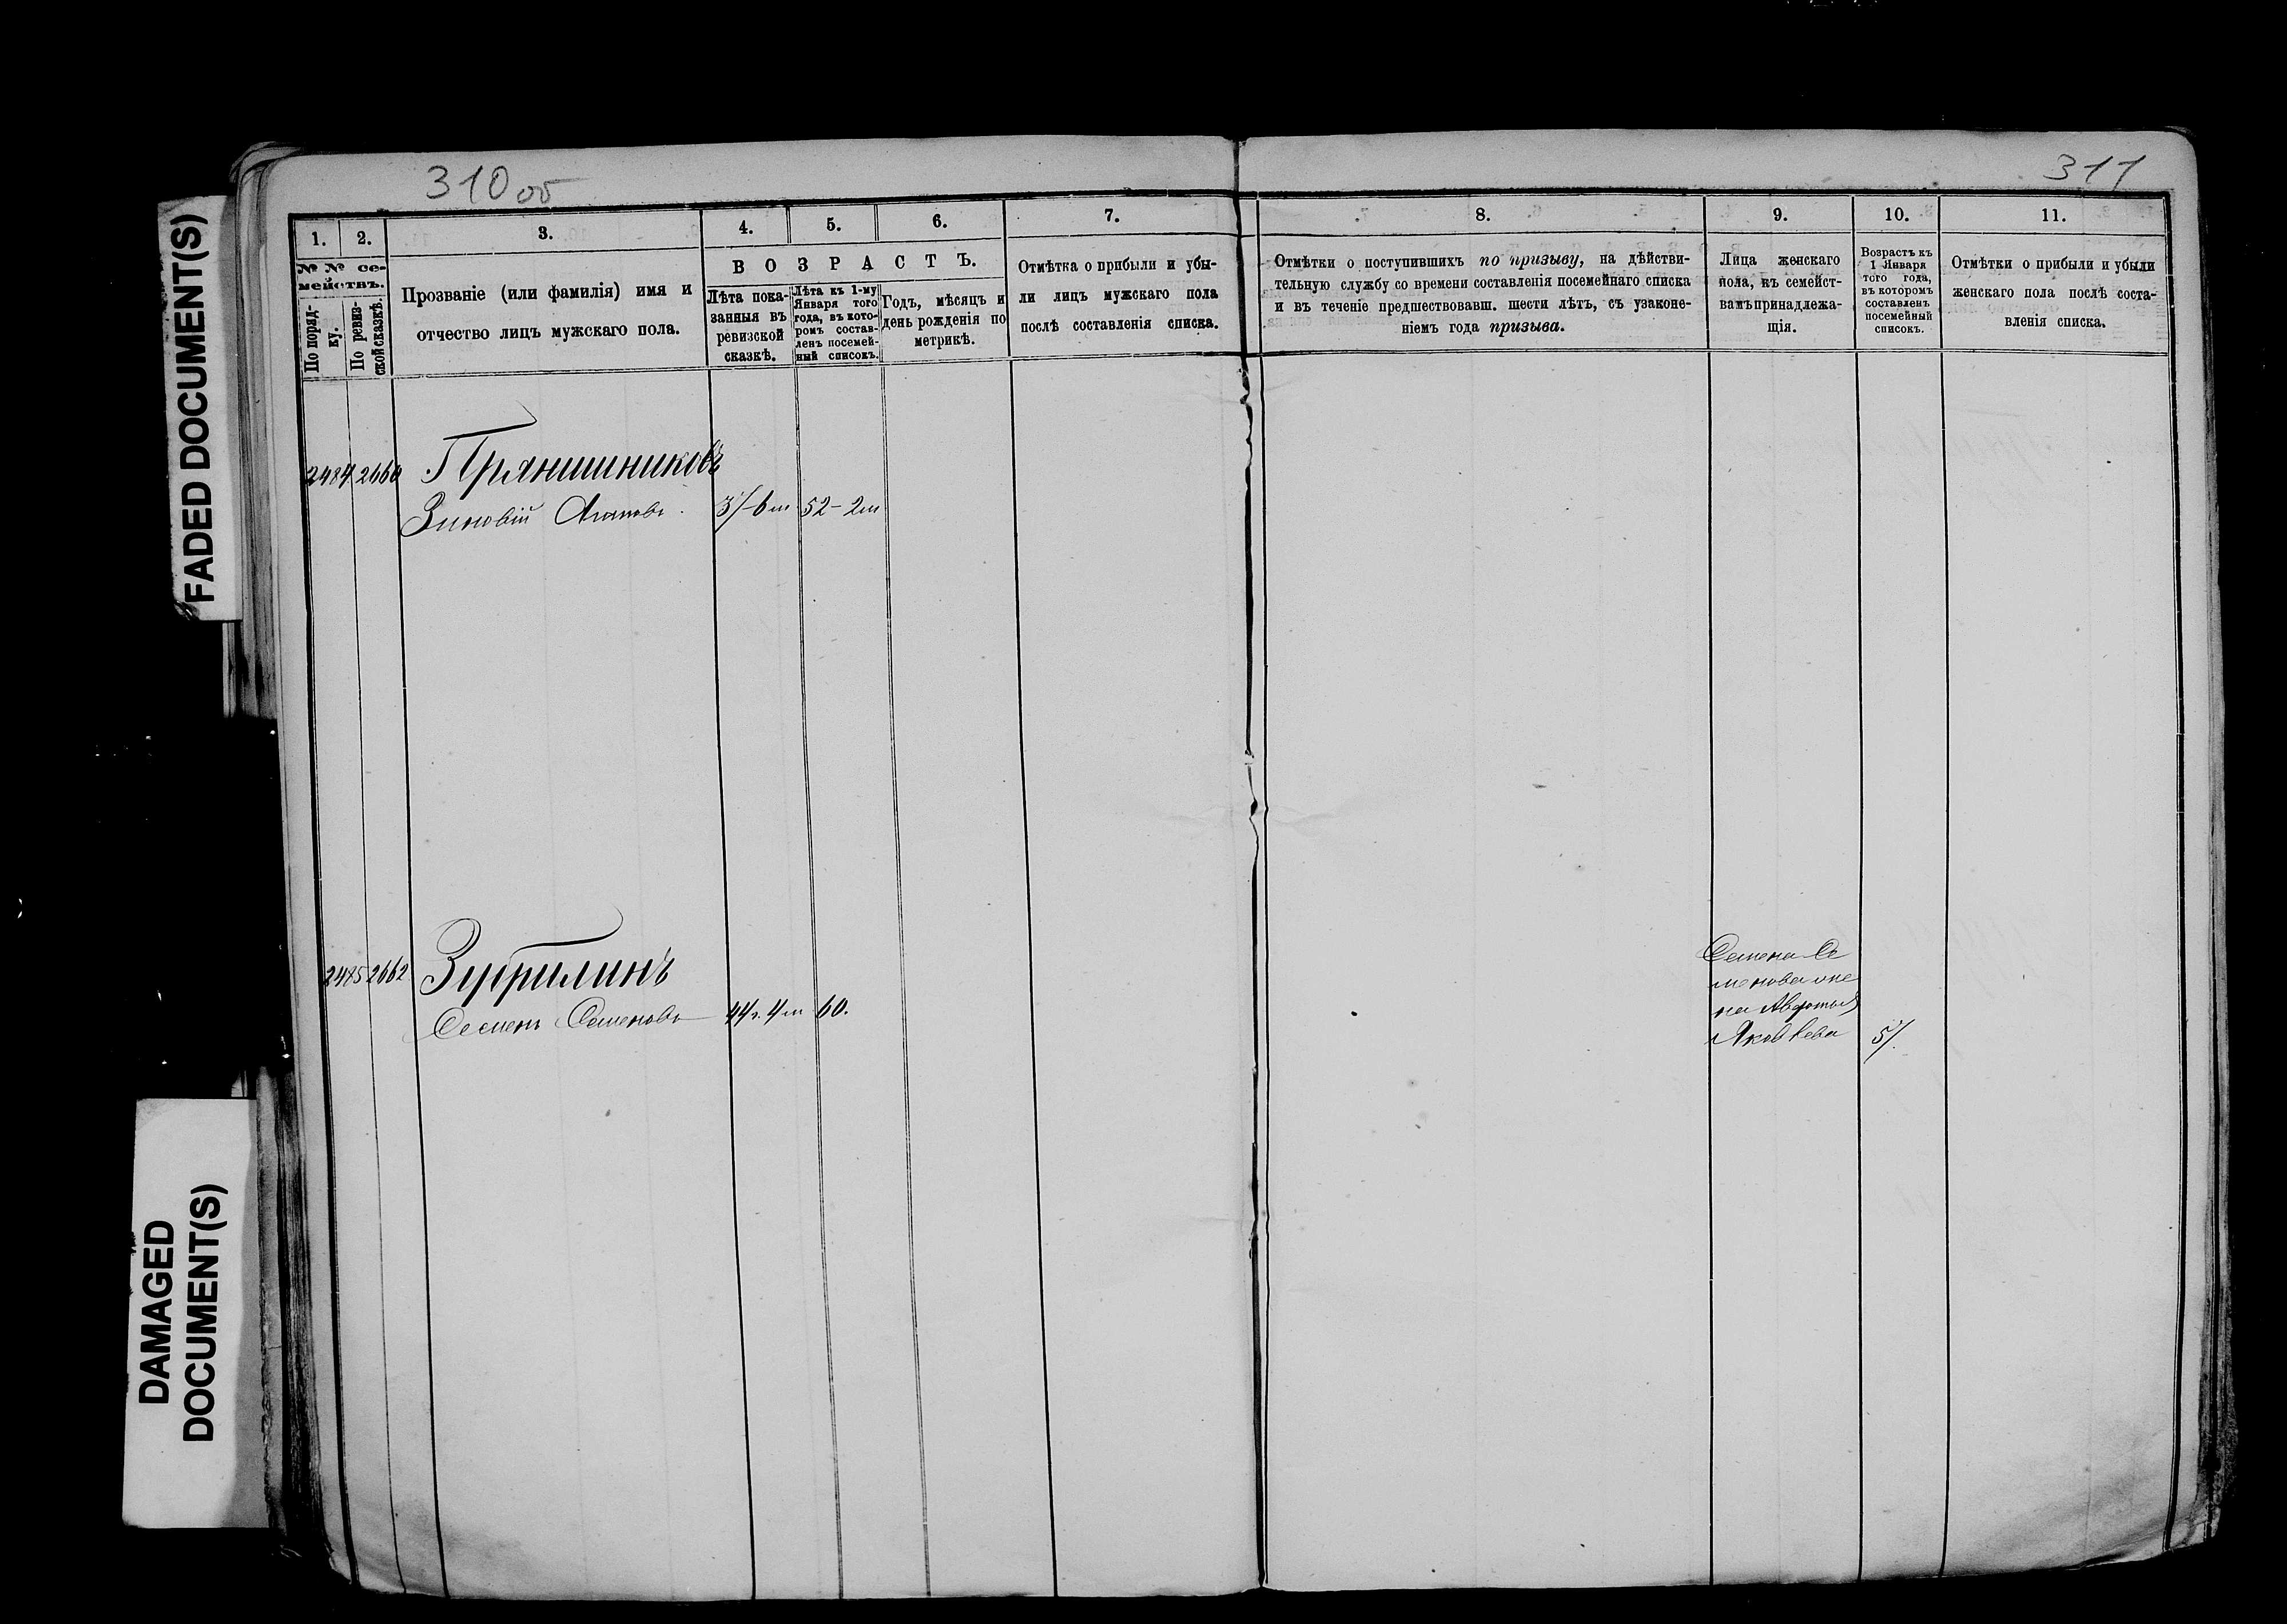 310 об
311
FADED DOCUMENT(S)
DAMAGED
DOCUMENT(S)
1.
2.
3.
4.
5.
6.
7.
8.
9.
10.
11.
№ № се-
мействъ.
По поряд-
ку.
По ревиз-
ской сказкѣ.
Прозваніе (или фамилія) имя и
отчество лицъ мужскаго пола.
ВОЗРАСТЪ.
Лѣта пока-
занныя въ
ревизской
сказкѣ.
Лѣта къ 1-му
Января того
года, въ кото-
ромъ состав-
ленъ посемей-
ный списокъ.
Годъ, мѣсяцъ и
день рожденія по
метрикѣ.
Отмѣтка о прибыли и убы-
ли лицъ мужскаго пола
послѣ составленія списка.
Отмѣтки о поступившихъ по призыву, на дѣйстви-
тельную службу со времени составленія посемейнаго списка
и въ теченіе предшествовавш. шести лѣтъ, съ узаконе-
ніемъ года призыва.
Лица женскаго
пола, къ семейст-
вамъ принадлежа-
щія.
Возрастъ къ
1 Января
того года,
въ которомъ
составленъ
посемейный
списокъ.
Отмѣтки о прибыли и убыли
женскаго пола послѣ соста-
вленія списка.
2484 2660 Прянишниковъ
Зиновій Агаповъ 31-6м 52-2м
2485 2662 Зуфрилинъ
Семенъ Семеновъ 44г. 4м 60.
Семена Се
менова же
на Авдотья
Яковлева 51.